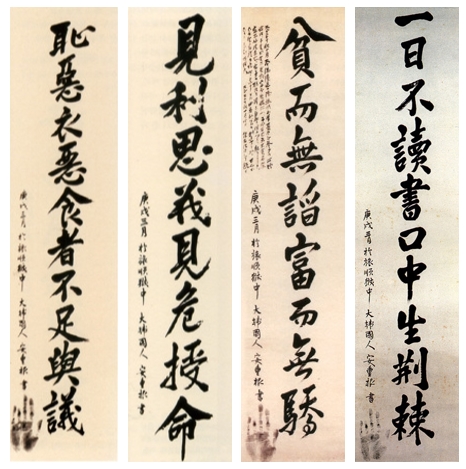 恥惡衣惡食者不足與議
庚戌三月 於旅順獄中 大韓國人 安重根 書
見利思義見危授命
庚戌三月 於旅順獄中 大韓國人 安重根 書
貧而無諂富而無驕
庚戌三月 於旅順獄中 大韓國人 安重根 書
一日不讀書口中生荊棘
庚戌三月 於旅順獄中 大韓國人 安重根 書